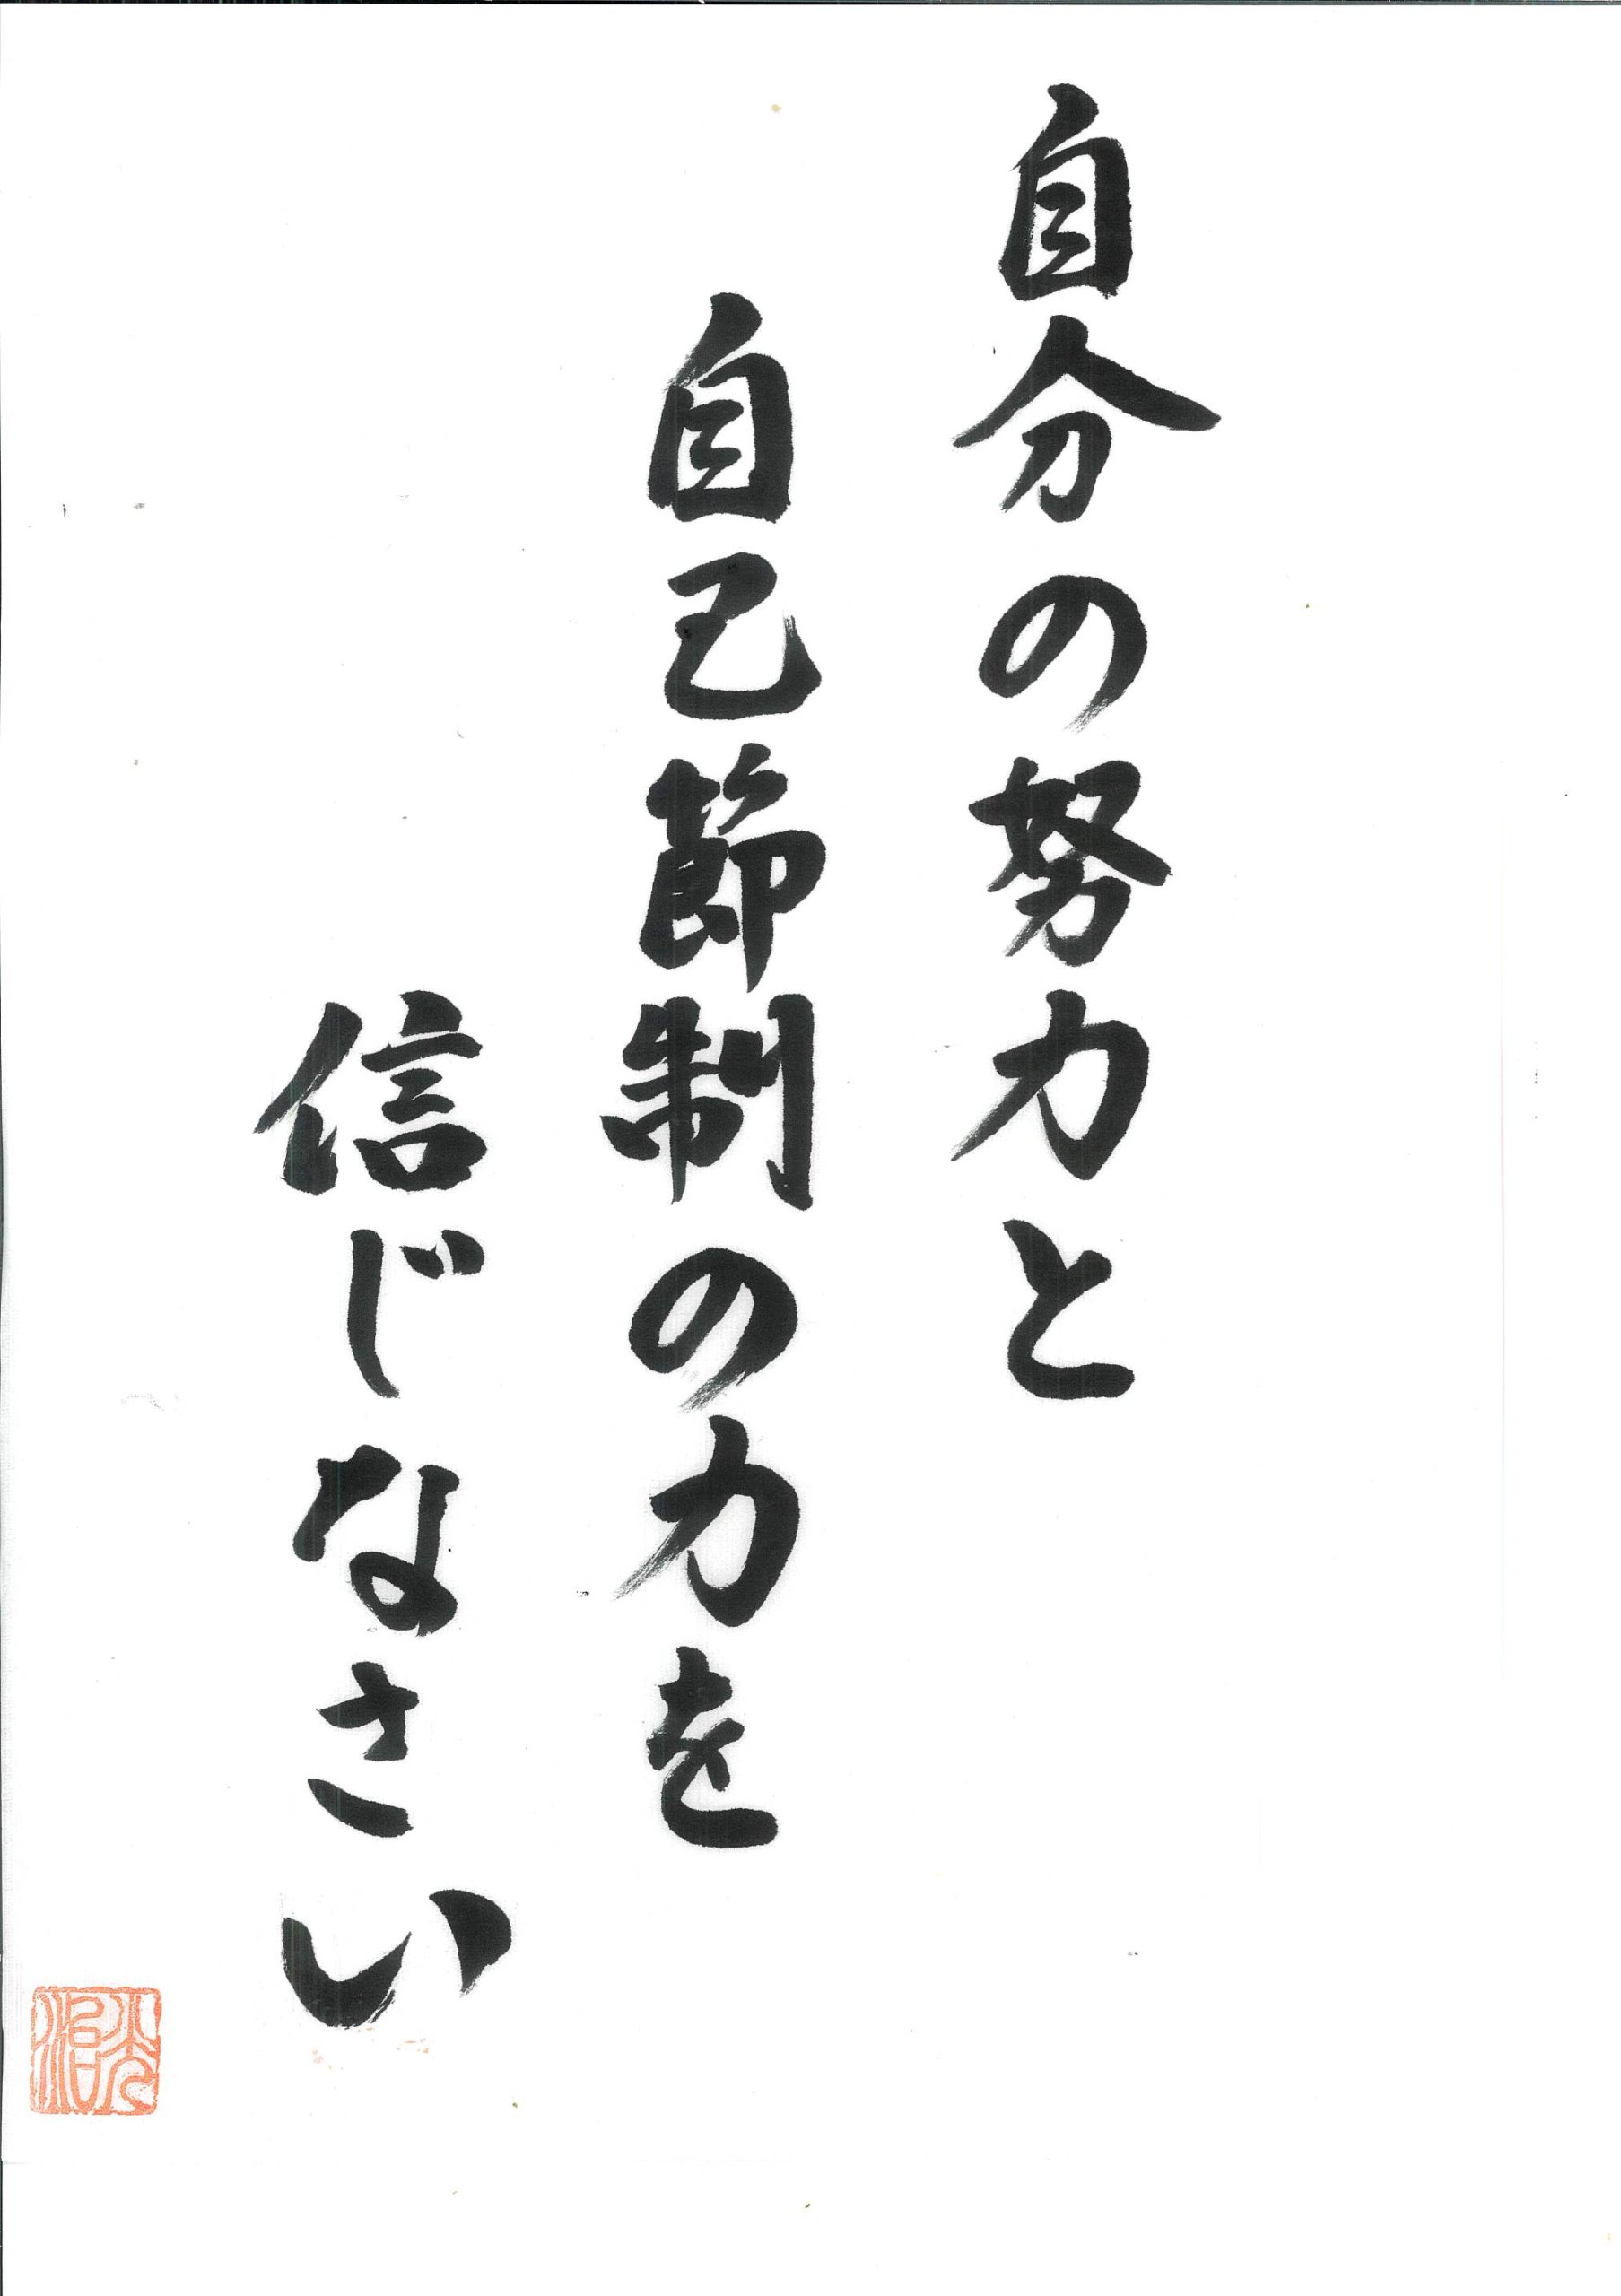 自分の努力と
自己節制の力を
信じなさい